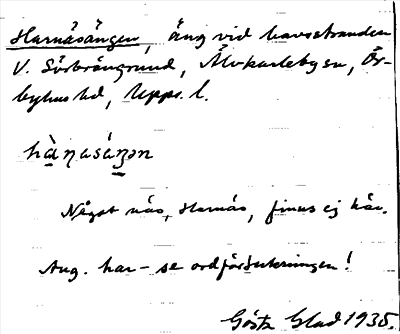 Harnäsängen, äng vid havsstranden
V. Sörbrängrund, Älvkarleby sn, Ör-
byhus hd, Upps. l.
hàṇasáŋən
Något näs, Harnäs, finns ej här.
Ang. har- se ordförteckningen!
Gösta Glad 1935.